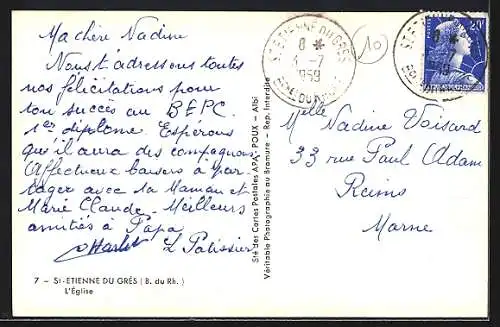 Ma chère Nadine
Nous t'adressons toutes
nos félicitations pour
ton succès au B.E.P.C.
1er diplome. Espérons
qu'il aura des compagnons
Affectueux baisers à par
tager avec ta Maman et
Marie Claude. Meilleurs
amitiés à Papa
L Patissier
7 – St-ETIENNE DU GRÉS (B. du Rh.)
L'Église
Sté des Cartes Postales APA-POUX - Albi
Véritable Photographie au Bromure - Rep. Interdite
ST ETIENNE DU GRÈS
8 *
3 -7
1959
BCHES DU RHONE
10
20F
Melle Nadine Voisard
33 rue Paul Adam
Reims
Marne